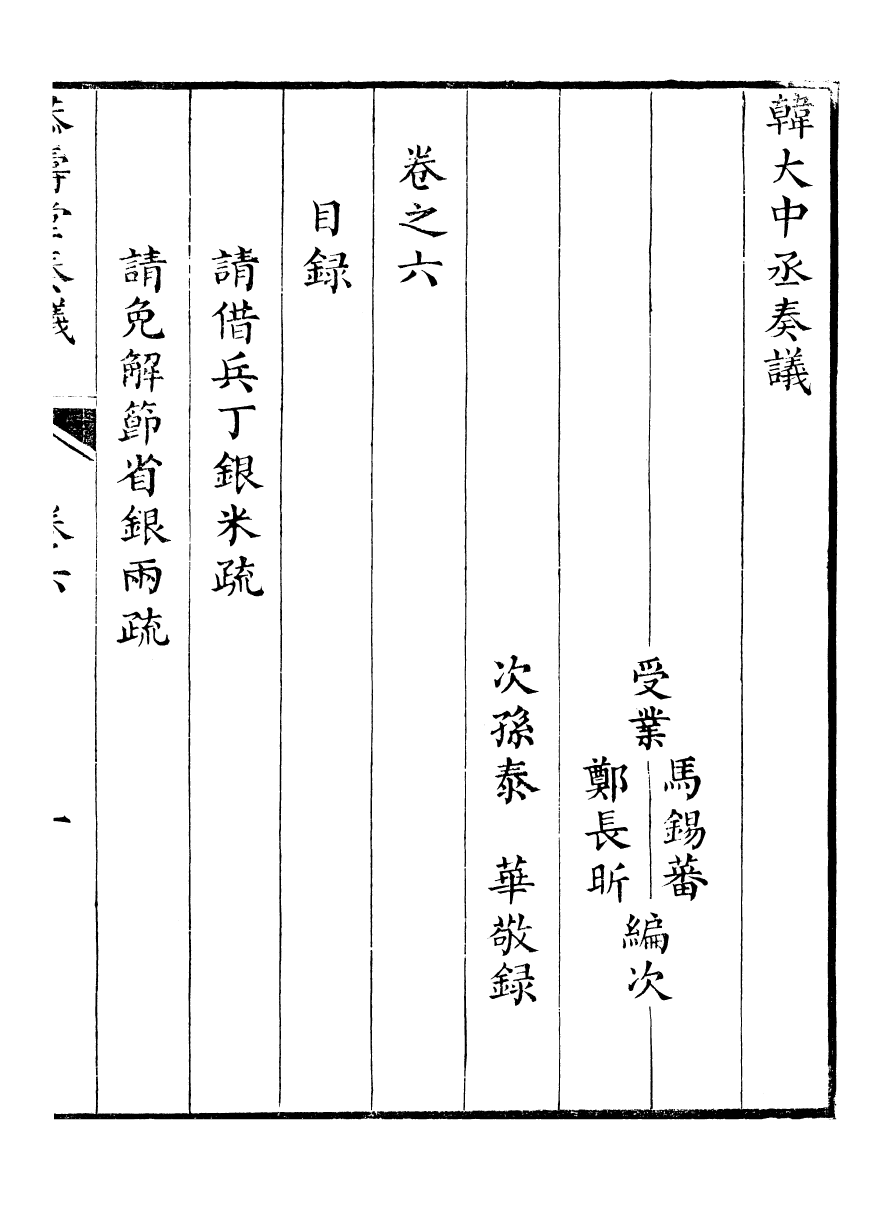 韓大中丞奏議
受業
馬錫蕃
鄭長昕
編次
次孫泰　華敬録
卷之六
目録
請借兵丁銀米疏
請免解節省銀兩疏
奏議
卷六
一